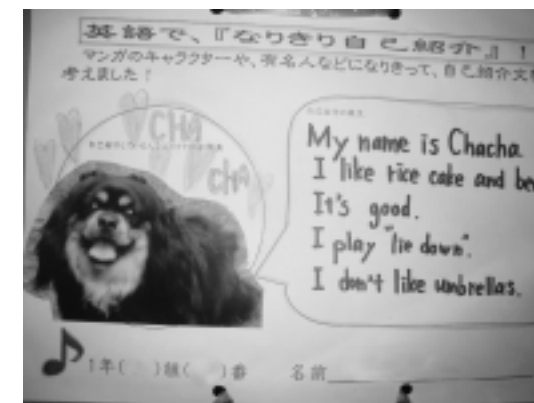 英語で、『なりきり自己紹介』！
マンガのキャラクターや、有名人などになりきって、自己紹介文
考えました！
CHA
CHA
My name is Chacha
I like rice cake and
It's good.
I play "lie down".
I don't like umbrellas.
1年( )組( )番 名前